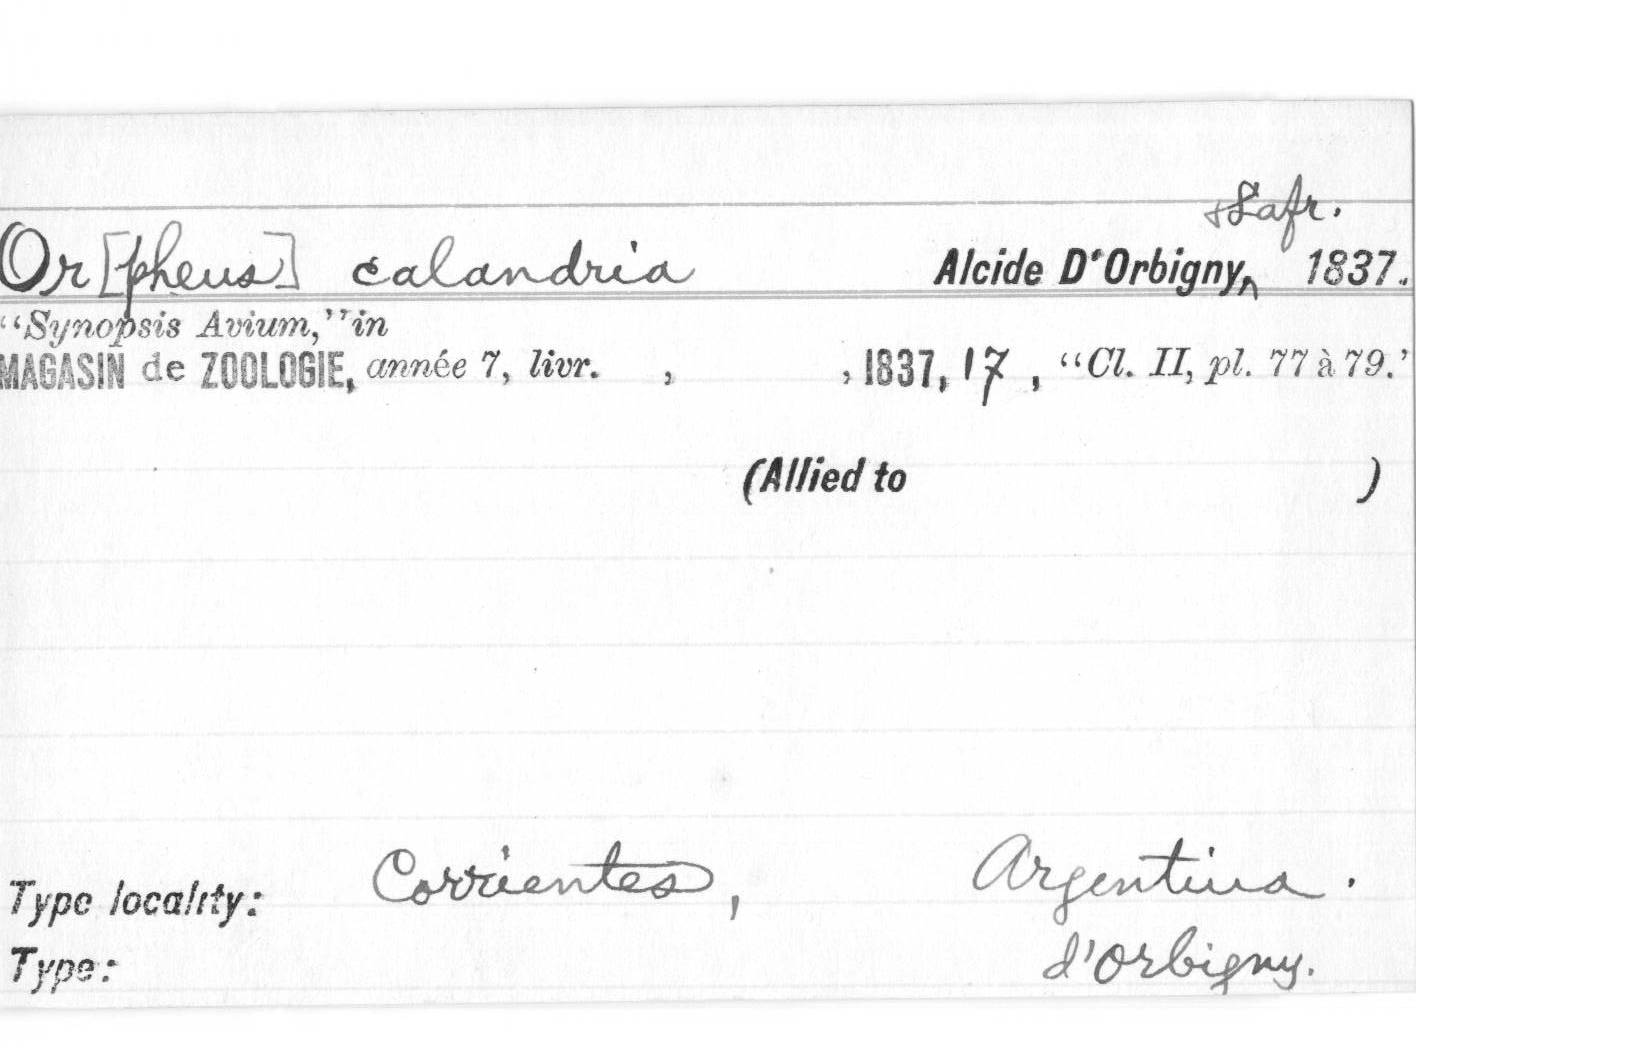 & Lafr.
Or[pheus] calandria Alcide D'Orbigny, 1837.
"Synopsis Avium," in
MAGASIN de ZOOLOGIE, année 7, livr. , , 1837, 17, "Cl. II, pl. 77 à 79."
(Allied to )
Type locality: Corrientes, Argentina.
Type: d'Orbigny.